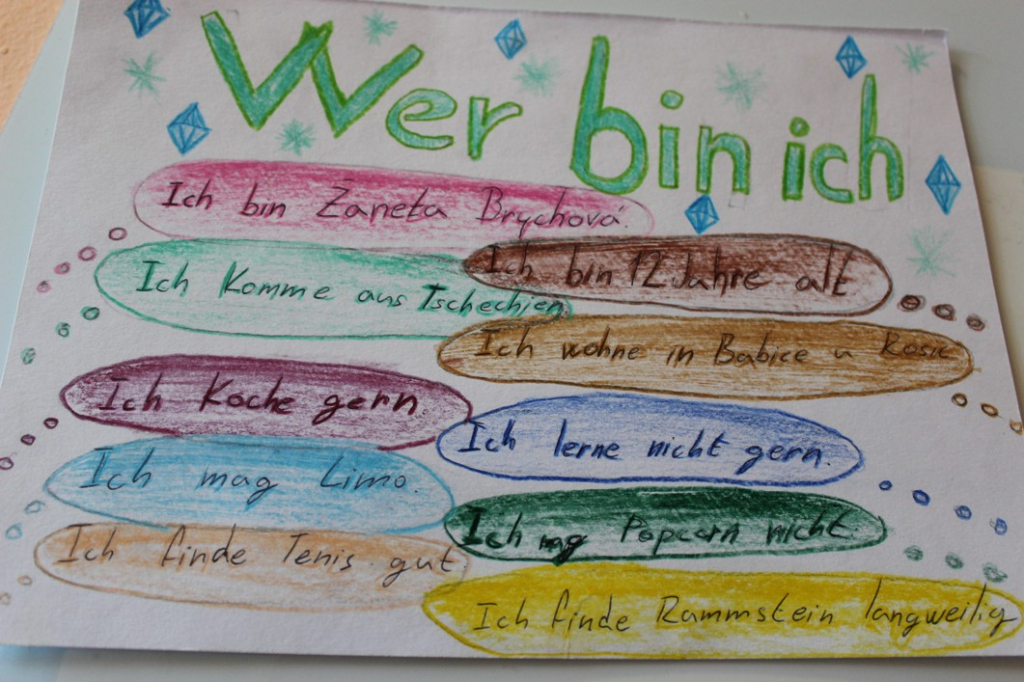 Wer bin ich
Ich bin Žaneta Brychová.
Ich bin 12 Jahre alt
Ich Komme aus Tschechien
Ich wohne in Babice u Rosic
Ich Koche gern.
Ich lerne nicht gern.
Ich mag Limo.
Ich mg Popcorn nicht.
Ich finde Tenis gut
Ich finde Rammstein langweilig